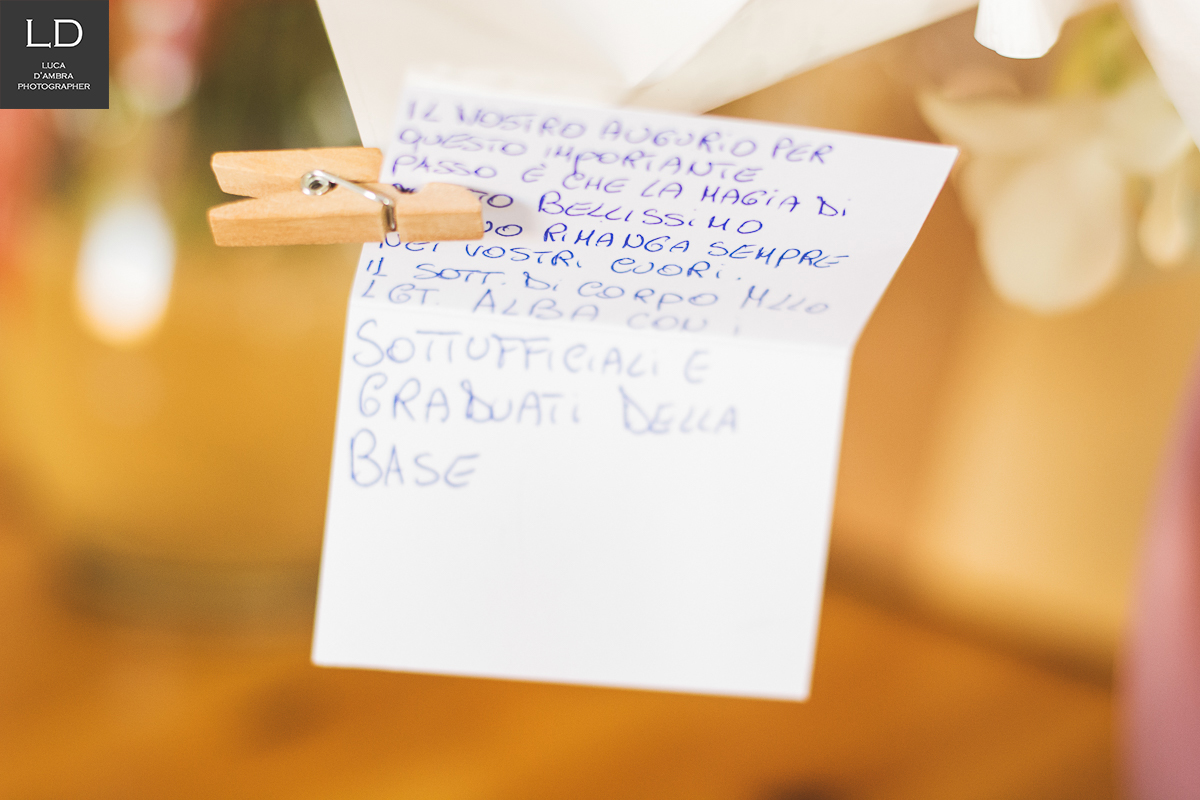 LD
LUCA
D'AMBRA
PHOTOGRAPHER
IL NOSTRO AUGURIO PER
QUESTO IMPORTANTE
PASSO È CHE LA MAGIA DI
BELLISSIMO
RIMANGA SEMPRE
NEI VOSTRI CUORI.
Il SOTT. DI CORPO
LGT. ALBA CON i
SOTTUFFICIALi E
GRADUATi DELLA
BASE